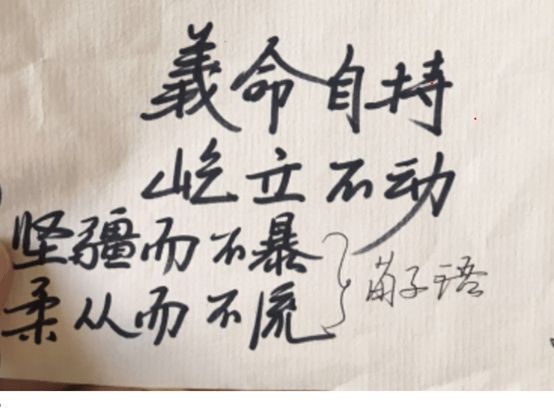 義命自持
屹立不动
坚疆而不暴
柔从而不流
荀子语